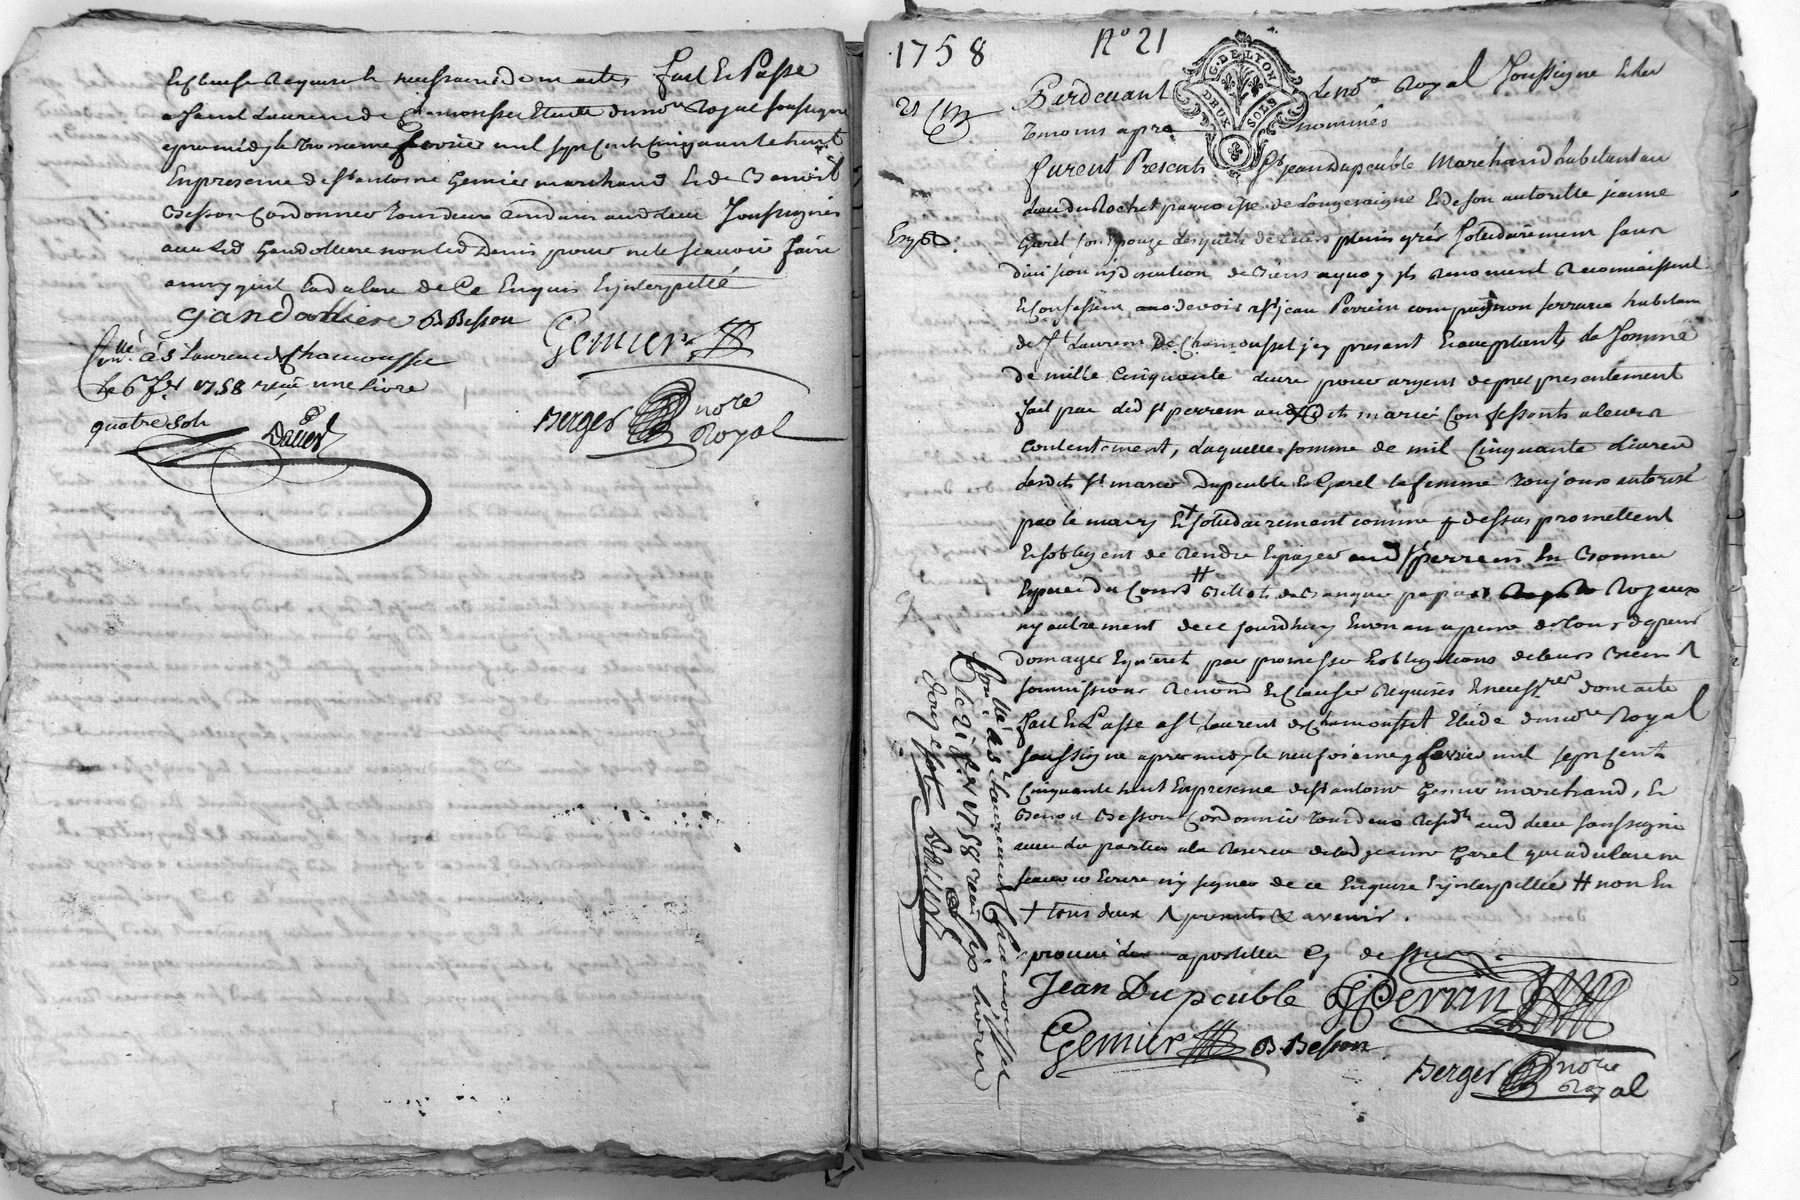 Et clause Requise et necessaire dom actes fait et Passé
a saint Laurens de Chamousset Etude du no.re Royal soussigne
apres midy le troisieme fevrier mil sept cent cinquante huit
En presence de s.r antoine Gemier marchand et de Benoist
Besson Cordonnier tous deux aud lieu soussignés
avec led Gandolliere non led Denis pour ne le scavoir faire
ainsy qu'il la declare de ce Enquis Et jnterpellé
Gandolliere B Besson
Gemier
Con.llé a S Laurens de Chamousset
le 6 f.er 1758 reçu une livre
quatre sols
Berger no.re
Royal
1758
N.o 21
G. DE LYON
DEUX SOLS
Pardevant le no.re Royal soussigne et les
temoins apres nommés
furent Presents s.r jean Dupeuble Marchand habitant au
lieu du Rochet parroisse de Longesaigne Et de son autoritte jeanne
Garel son Epouze lesquels de leurs pleins grés solidairement sans
division ny discution de Biens a quoy jls renoncent Reconnaissent
Et Confessent devoir a s.r jean Perrin compagnon serrurier habitant
de s.t Laurens de Chamousset jcy present Et acceptant la somme
de mille Cinquante livre pour argent de pret presentement
fait par led s.r perrin aud dits mariés Confessants a leurs
contentement, Laquelle somme de mil Cinquante Livres
lesdits s.r mariés Dupeuble Et Garel la femme toujours autorisé
par le mary Et solidairement comme cy dessus promettent
Et s'obligent de rendre Et payer aud s.r perrin En Bonnes
Especes du Cours # Billets de Banque papiers Royaux
ny autrement de ce jourdhuy En un an a peine de tous depens
domages Et jnterets par promesse Et obligations de leurs Biens
soumissions Renon.d Et Clauses Requises Et necess.res dont acte
fait Et Passe a s.t Laurent de Chamousset Etude du no.re Royal
soussigne apres midy le neufvieme fevrier mil sept cents
Cinquante huit En presence de s.r antoine Gemier marchand, et
Benoit Besson Cordonnier tous deux resid.ts aud lieu soussignés
avec les parties a la Reserve de lad jeanne Garel qui a declare ne
scavoir Ecrire ny signer de ce Enquise Et jnterpellée # non En
+ tous deux presents & avenir.
aprouvé les apostilles cy dessus
Jean Dupeuble JPerrin
Gemier B. Besson
Berger no.re
Royal
Con.llé a S.t Laurens de Chamousset
le 21 f.er 1758 reçu six livres
douze sols